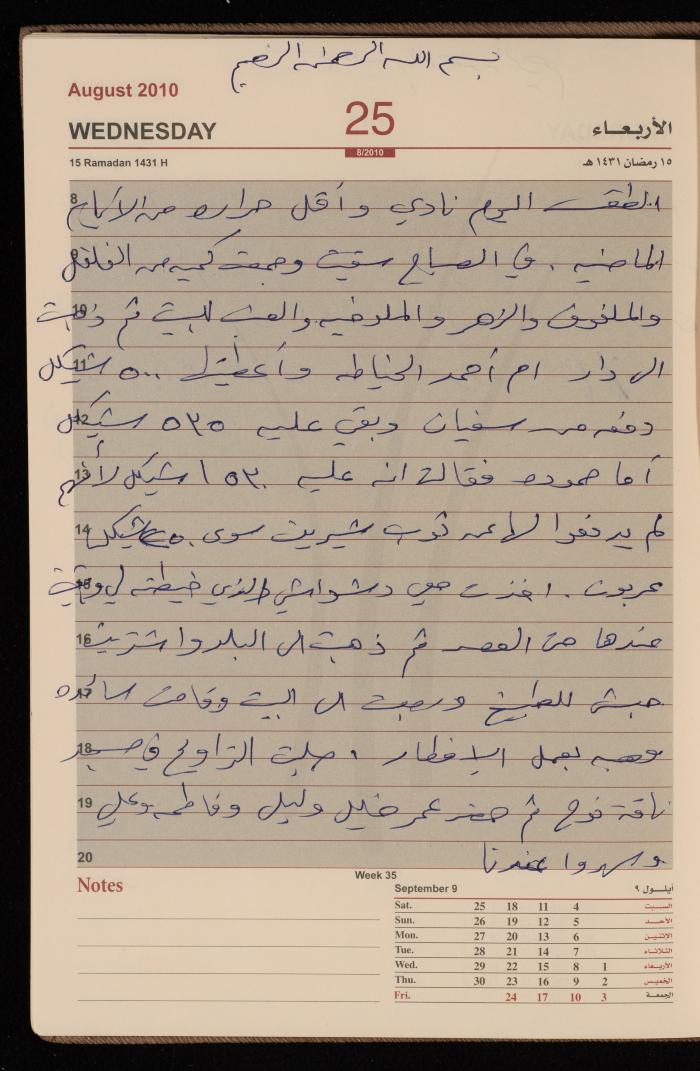 بسم الله الرحمن الرحيم
August 2010
WEDNESDAY 25 الأربعاء
15 Ramadan 1431 H 8/2010 ١٥ رمضان ١٤٣١ هـ
8 الطقس اليوم نادي وأقل حراره من الأيام
9 الماضيه . في الصباح سقيت وجمعت كميه من الفلفل
10 والملفوف والزهر والملوخيه والعنب للبيت ثم ذهبت
11 الى دار ام أحمد الخياطه وأعطيتها ٥٠٠ شيكل
12 دفعه من سفيان وبقي عليه ٥٣٥ شيكل
13 أما حموده فقالت انه عليه ١٥٣٠ شيكل لأنهم
14 لم يدفعوا لها عن ثوب شيرين سوى شيكل
15 عربون . اخذت معي دشداشي الذي خيطته لي وبقيت
16 عندها حتى العصر ثم ذهبت الى البلد واشتريت
17 للطبخ ورجعت الى البيت وقامت سائده
18 وهبه بعمل الافطار . صليت التراويح في مسجد
19 ناقة نوح ثم حضر عمر خليل وليلى وفاطمه وعلي
20 وسهروا عندنا
Notes
Week 35
September 9 أيلول ٩
Sat. 25 18 11 4 السبت
Sun. 26 19 12 5 الأحد
Mon. 27 20 13 6 الاثنين
Tue. 28 21 14 7 الثلاثاء
Wed. 29 22 15 8 1 الأربعاء
Thu. 30 23 16 9 2 الخميس
Fri. 24 17 10 3 الجمعة